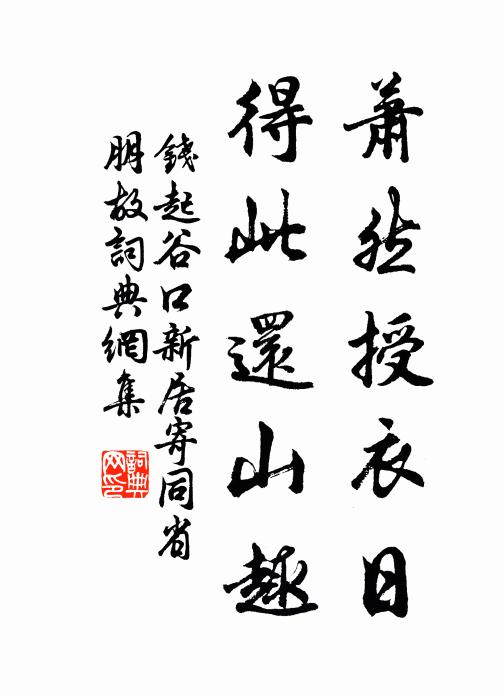 蕭然授衣日
得此還山趣
錢起谷口新居寄同省
朋故詞典網集
詞典
网印